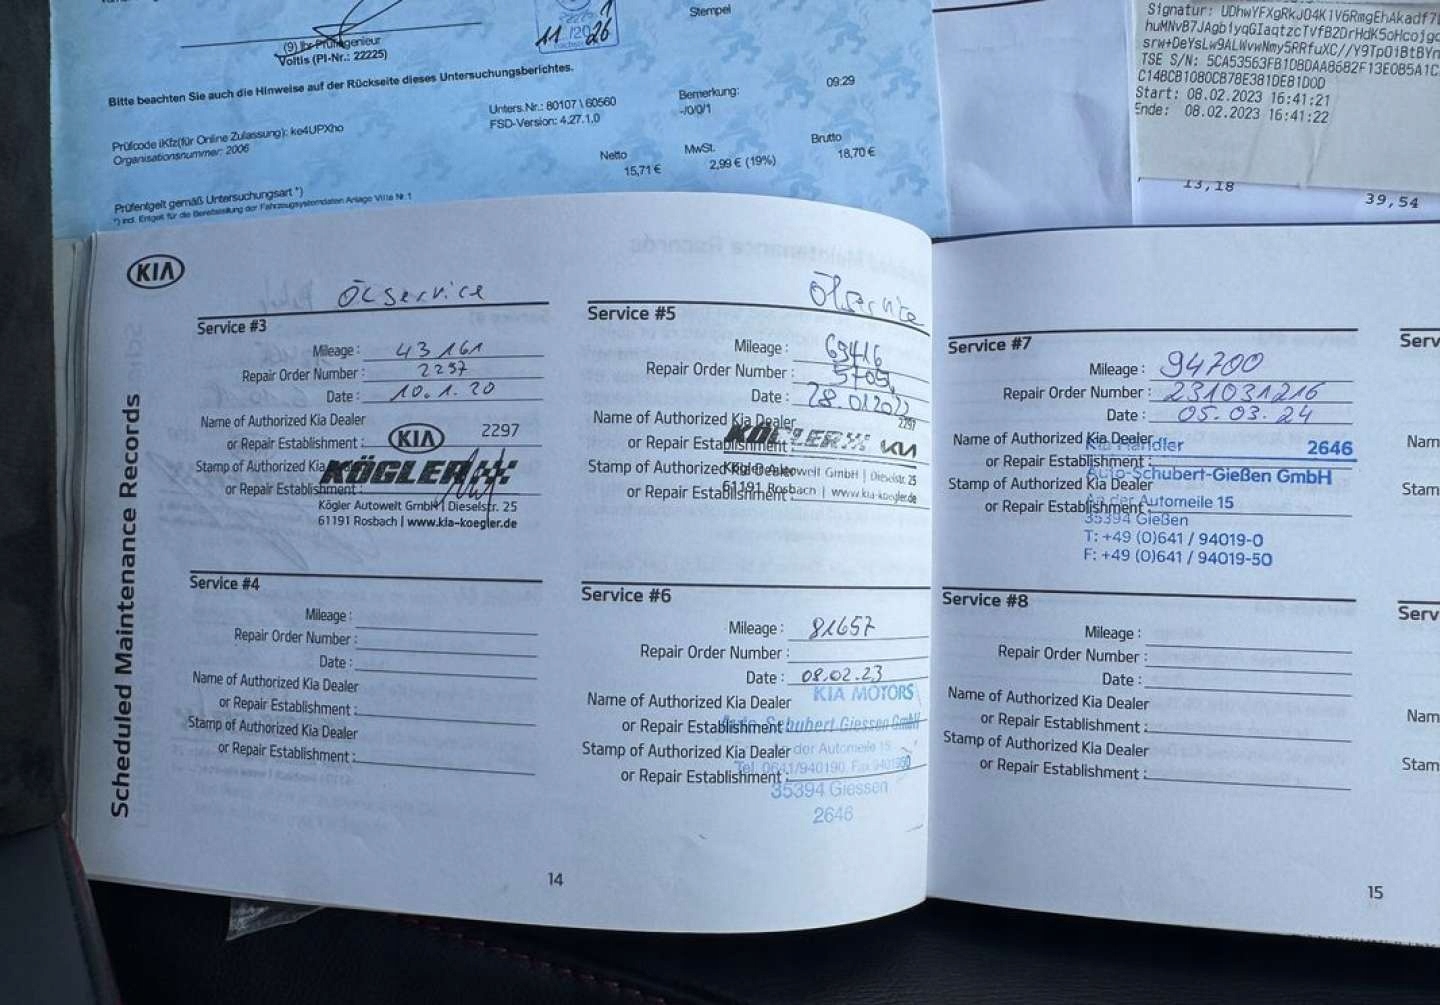 (9) Ihr Prüfingenieur
Voltis (PI-Nr.: 22225)
11 /2026
Stempel
Bitte beachten Sie auch die Hinweise auf der Rückseite dieses Untersuchungsberichtes.
Prüfcode iKfz(für Online Zulassung): ke4UPXho
Organisationsnummer: 2006
Unters.Nr.: 80107 \ 60560
FSD-Version: 4.27.1.0
Bemerkung:
-/0/0/1
09:29
Netto
15,71 €
MwSt.
2,99 € (19%)
Brutto
18,70 €
Prüfentgelt gemäß Untersuchungsart *)
*) incl. Entgelt für die Bereitstellung der Fahrzeugsystemdaten Anlage VIIIe Nr. 1
TSE S/N:
Start: 08.02.2023 16:41:21
Ende: 08.02.2023 16:41:22
13,18
39,54
KIA
Scheduled Maintenance Records
Ölservice
Service #3
Mileage : 43161
Repair Order Number : 2297
Date : 10.1.20
Name of Authorized Kia Dealer
or Repair Establishment :
Stamp of Authorized Kia
or Repair Establishment :
KIA 2297
KÖGLER
Kögler Autowelt GmbH | Dieselstr. 25
61191 Rosbach | www.kia-koegler.de
Service #4
Mileage :
Repair Order Number :
Date :
Name of Authorized Kia Dealer
or Repair Establishment :
Stamp of Authorized Kia Dealer
or Repair Establishment :
14
Ölservice
Service #5
Mileage : 69416
Repair Order Number :
Date : 28.012022
Name of Authorized Kia Dealer
or Repair Establishment :
Stamp of Authorized Kia Dealer
or Repair Establishment :
2297
KÖGLER KIA
Kögler Autowelt GmbH | Dieselstr. 25
61191 Rosbach | www.kia-koegler.de
Service #6
Mileage : 81657
Repair Order Number :
Date : 08.02.23
Name of Authorized Kia Dealer
or Repair Establishment :
Stamp of Authorized Kia Dealer
or Repair Establishment :
KIA MOTORS
Auto-Schubert Giessen GmbH
der Automeile 15
Tel. 0641/940190
35394 Giessen
2646
Service #7
Mileage : 94700
Repair Order Number : 231031216
Date : 05.03.24
Name of Authorized Kia Dealer
or Repair Establishment :
Stamp of Authorized Kia Dealer
or Repair Establishment :
Kia Händler 2646
Auto-Schubert-Gießen GmbH
An der Automeile 15
35394 Gießen
T: +49 (0)641 / 94019-0
F: +49 (0)641 / 94019-50
Service #8
Mileage :
Repair Order Number :
Date :
Name of Authorized Kia Dealer
or Repair Establishment :
Stamp of Authorized Kia Dealer
or Repair Establishment :
15
Serv
Nam
Stam
Serv
Nam
Stam